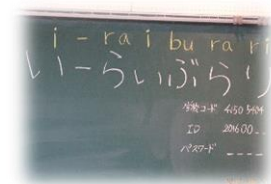 i - ra i bu ra ri
いーらいぶらり
学校コード 4150 5404
ID 201600..
パスワード ----